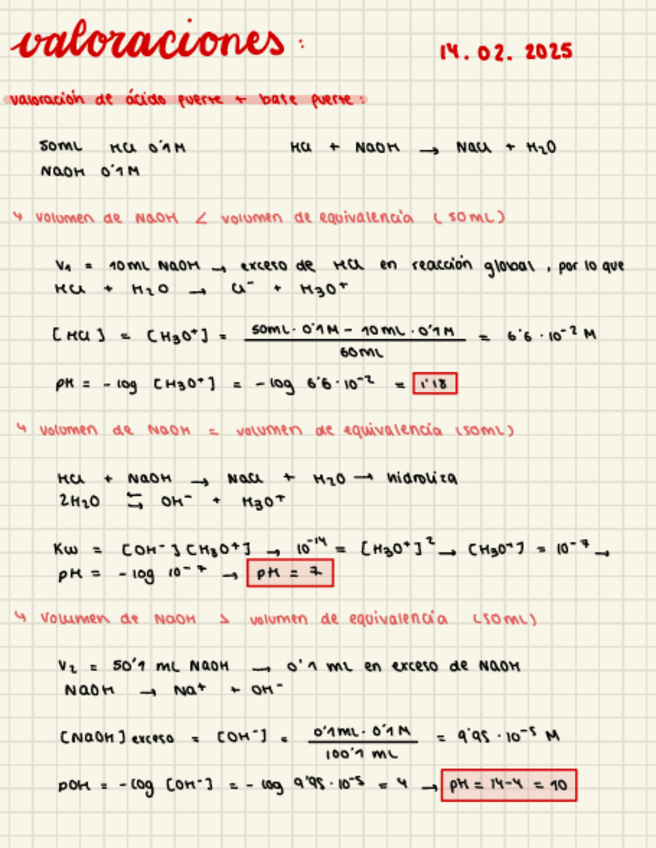 valoraciones:
14.02.2025
valoración de ácido fuerte + base fuerte:
50mL HCl 0'1M HCl + NaOH → NaCl + H2O
NaOH 0'1M
↳ volumen de NaOH < volumen de equivalencia (50mL)
V1 = 10mL NaOH → exceso de HCl en reacción global, por lo que
HCl + H2O → Cl⁻ + H3O⁺
[HCl] = [H3O⁺] = (50mL·0'1M − 10mL·0'1M) / 60mL = 6'6·10⁻² M
pH = -log [H3O⁺] = -log 6'6·10⁻² = 1'18
↳ volumen de NaOH = volumen de equivalencia (50mL)
HCl + NaOH → NaCl + H2O → hidroliza
2H2O ⇆ OH⁻ + H3O⁺
Kw = [OH⁻][H3O⁺] → 10⁻¹⁴ = [H3O⁺]² → [H3O⁺] = 10⁻⁷ →
pH = -log 10⁻⁷ → pH = 7
↳ volumen de NaOH > volumen de equivalencia (50mL)
V2 = 50'1 mL NaOH → 0'1 mL en exceso de NaOH
NaOH → Na⁺ + OH⁻
[NaOH] exceso = [OH⁻] = (0'1mL·0'1M) / 100'1 mL = 9'95·10⁻⁵ M
pOH = -log [OH⁻] = -log 9'95·10⁻⁵ = 4 → pH = 14-4 = 10